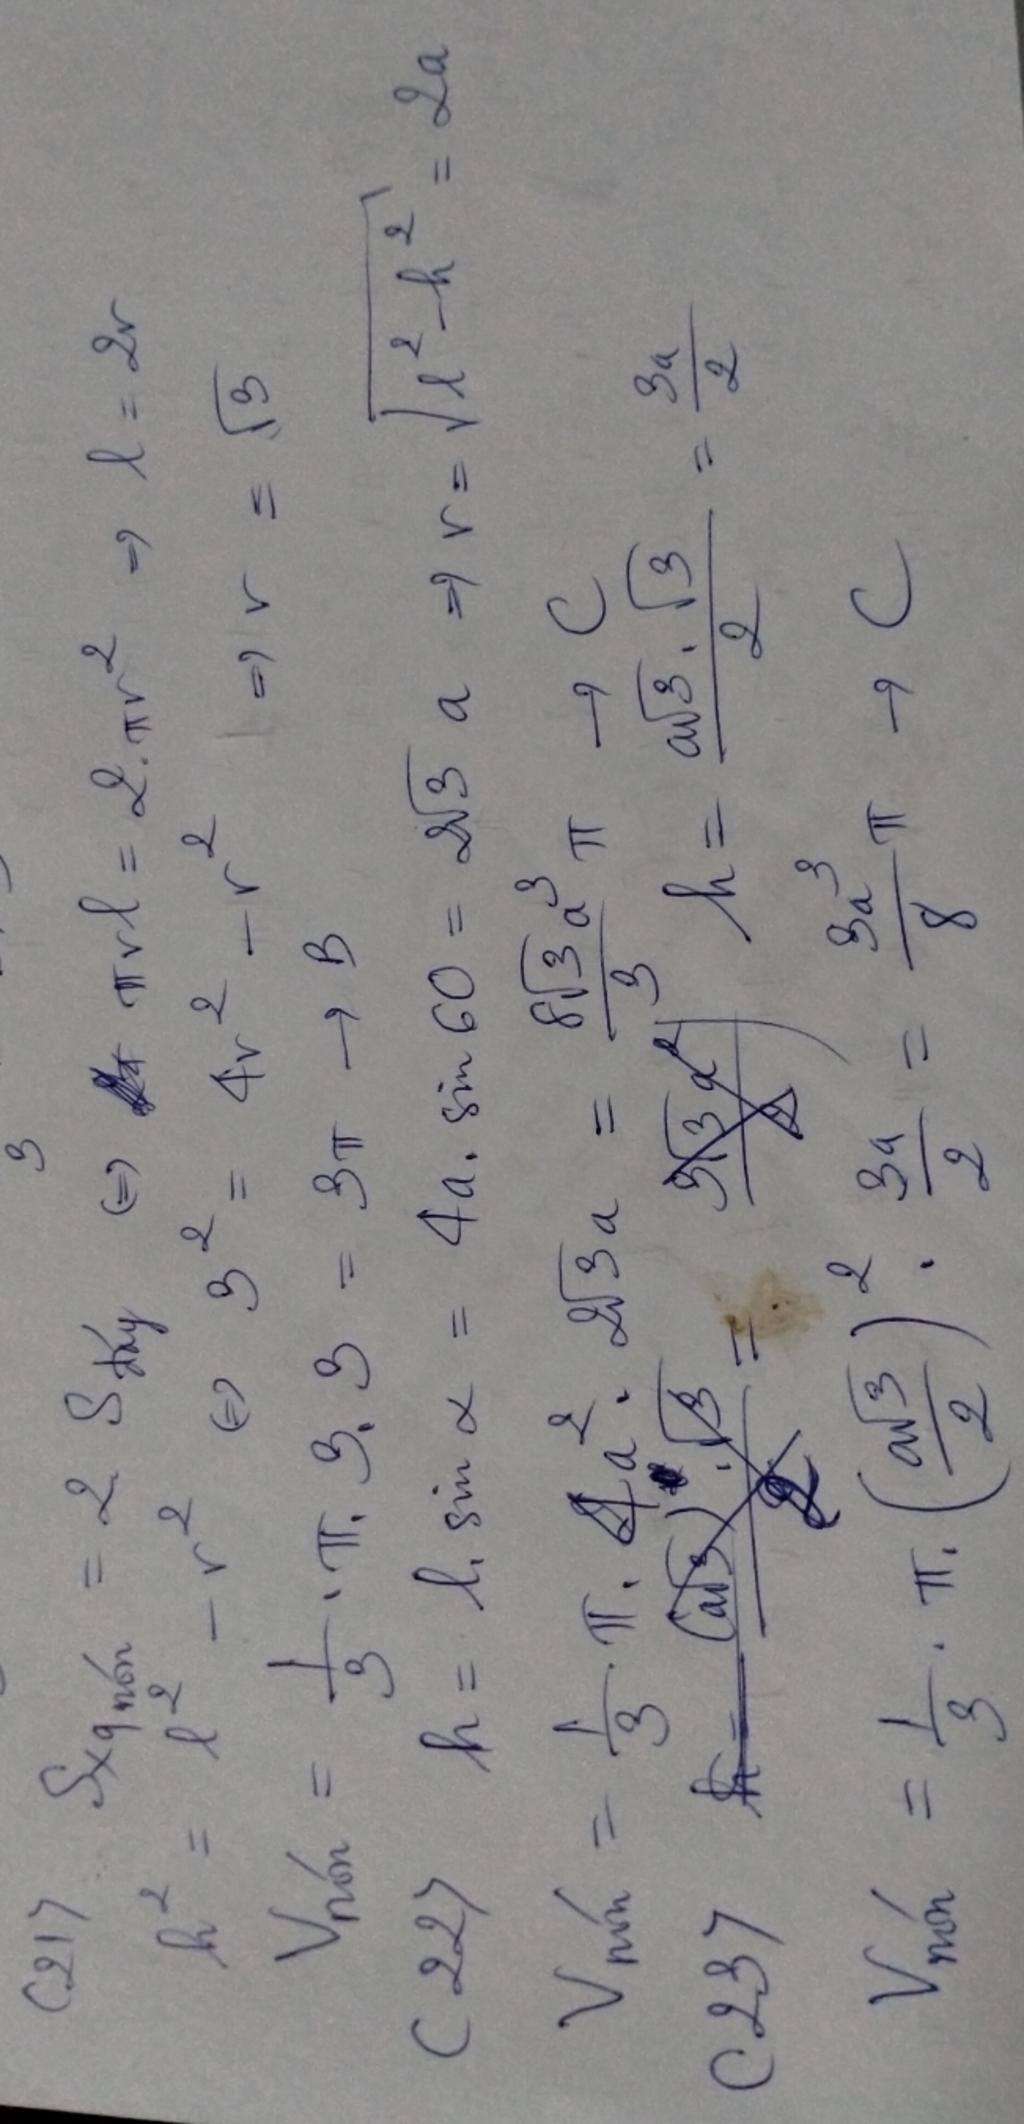 3
C21> Sxq nón = 2 Sđáy ⇔ πrl = 2.πr² ⇒ l = 2r
h² = l² − r² ⇔ 3² = 4r² − r² ⇒ r = √3
Vnón = 1/3 . π . 3 . 3 = 3π → B
C22> h = l. sin α = 4a. sin 60 = 2√3 a ⇒ r = √(l² − h²) = 2a
Vnón = 1/3 . π . 4a² . 2√3a = 8√3a³/3 π → C
C23> h = a√3 . √3 / 2 = 3a/2
Vnón = 1/3 . π . (a√3/2)² . 3a/2 = 3a³/8 π → C